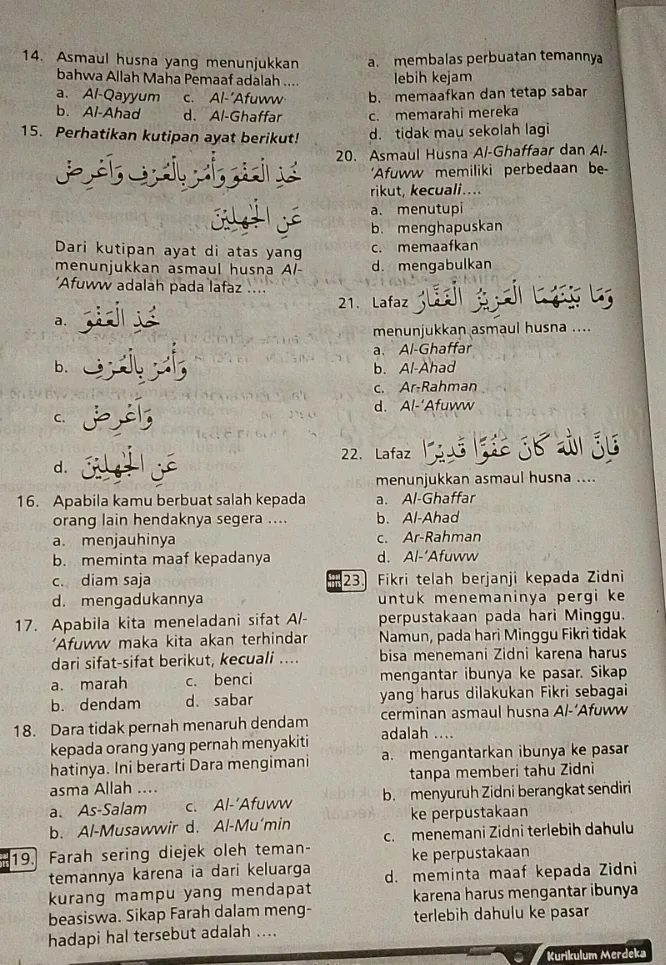 14. Asmaul husna yang menunjukkan
bahwa Allah Maha Pemaaf adalah ....
a. Al-Qayyum c. Al-‘Afuww
b. Al-Ahad d. Al-Ghaffar
15. Perhatikan kutipan ayat berikut!
خُذِ الْعَفْوَ وَأْمُرْ بِالْعُرْفِ وَأَعْرِضْ
عَنِ الْجٰهِلِيْنَ
Dari kutipan ayat di atas yang
menunjukkan asmaul husna Al-
‘Afuww adalah pada lafaz ....
a. خُذِ الْعَفْوَ
b. وَأْمُرْ بِالْعُرْفِ
c. وَأَعْرِضْ
d. عَنِ الْجٰهِلِيْنَ
16. Apabila kamu berbuat salah kepada
orang lain hendaknya segera ....
a. menjauhinya
b. meminta maaf kepadanya
c. diam saja
d. mengadukannya
17. Apabila kita meneladani sifat Al-
‘Afuww maka kita akan terhindar
dari sifat-sifat berikut, kecuali ....
a. marah c. benci
b. dendam d. sabar
18. Dara tidak pernah menaruh dendam
kepada orang yang pernah menyakiti
hatinya. Ini berarti Dara mengimani
asma Allah ....
a. As-Salam c. Al-‘Afuww
b. Al-Musawwir d. Al-Mu’min
19. Farah sering diejek oleh teman-
temannya karena ia dari keluarga
kurang mampu yang mendapat
beasiswa. Sikap Farah dalam meng-
hadapi hal tersebut adalah ....
a. membalas perbuatan temannya
lebih kejam
b. memaafkan dan tetap sabar
c. memarahi mereka
d. tidak mau sekolah lagi
20. Asmaul Husna Al-Ghaffaar dan Al-
‘Afuww memiliki perbedaan be-
rikut, kecuali....
a. menutupi
b. menghapuskan
c. memaafkan
d. mengabulkan
21. Lafaz وَمَا بَيْنَهُمَا الْعَزِيْزُ الْغَفَّارُ
menunjukkan asmaul husna ....
a. Al-Ghaffar
b. Al-Ahad
c. Ar-Rahman
d. Al-‘Afuww
22. Lafaz فَاِنَّ اللهَ كَانَ عَفُوًّا قَدِيْرًا
menunjukkan asmaul husna ....
a. Al-Ghaffar
b. Al-Ahad
c. Ar-Rahman
d. Al-‘Afuww
23. Fikri telah berjanji kepada Zidni
untuk menemaninya pergi ke
perpustakaan pada hari Minggu.
Namun, pada hari Minggu Fikri tidak
bisa menemani Zidni karena harus
mengantar ibunya ke pasar. Sikap
yang harus dilakukan Fikri sebagai
cerminan asmaul husna Al-‘Afuww
adalah ....
a. mengantarkan ibunya ke pasar
tanpa memberi tahu Zidni
b. menyuruh Zidni berangkat sendiri
ke perpustakaan
c. menemani Zidni terlebih dahulu
ke perpustakaan
d. meminta maaf kepada Zidni
karena harus mengantar ibunya
terlebih dahulu ke pasar
Kurikulum Merdeka